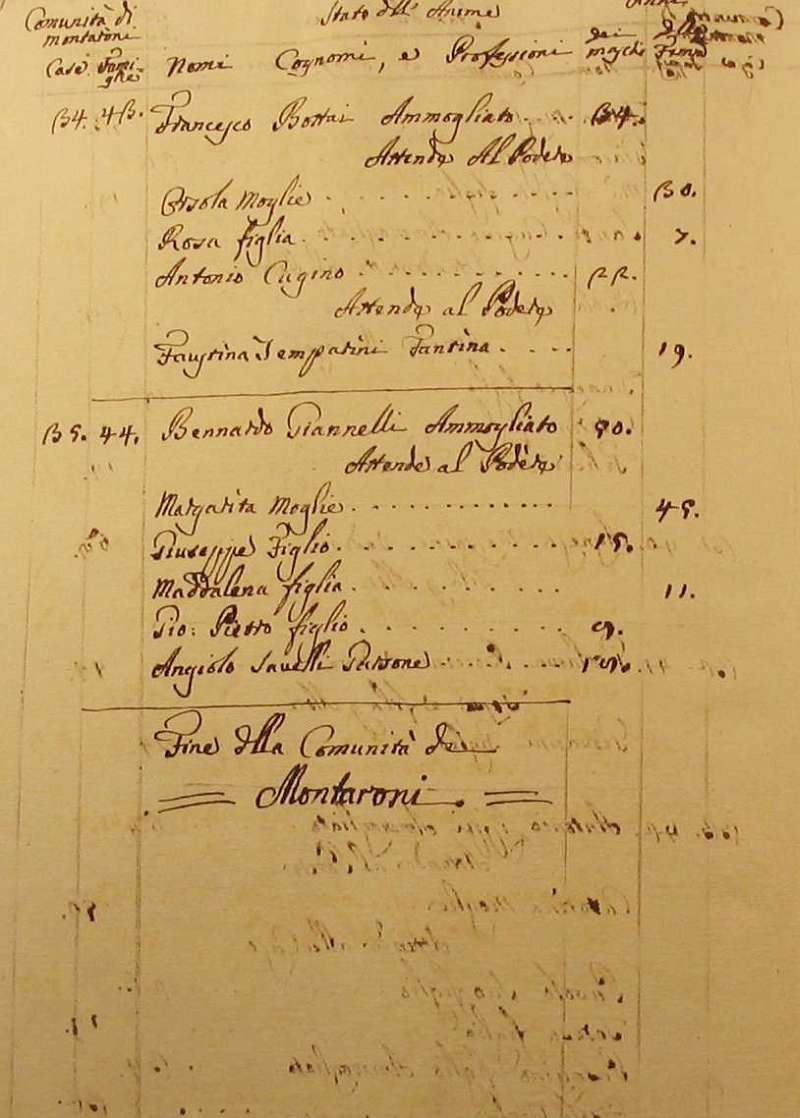 Comunità di Stato dell' Anime Anni
montaroni
Case Fami- Nomi Cognomi, e Professioni dei maschi delle
glie
34. 43. Francesco Bottai Ammogliato 34.
Attende Al Podere
Orsola Moglie 30.
Rosa figlia 7.
Antonio Cugino 22.
Attende al Podere
Faustina Temparini Fantina 19.
35. 44. Bennardo Giannelli Ammogliato 50.
Attende al Podere
Margarita Moglie 45.
Giuseppe Figlio 15.
Maddalena figlia 11.
Gio: Pietro figlio 9.
Angiolo Savelli Garzone
Fine della Comunità di
Montaroni.